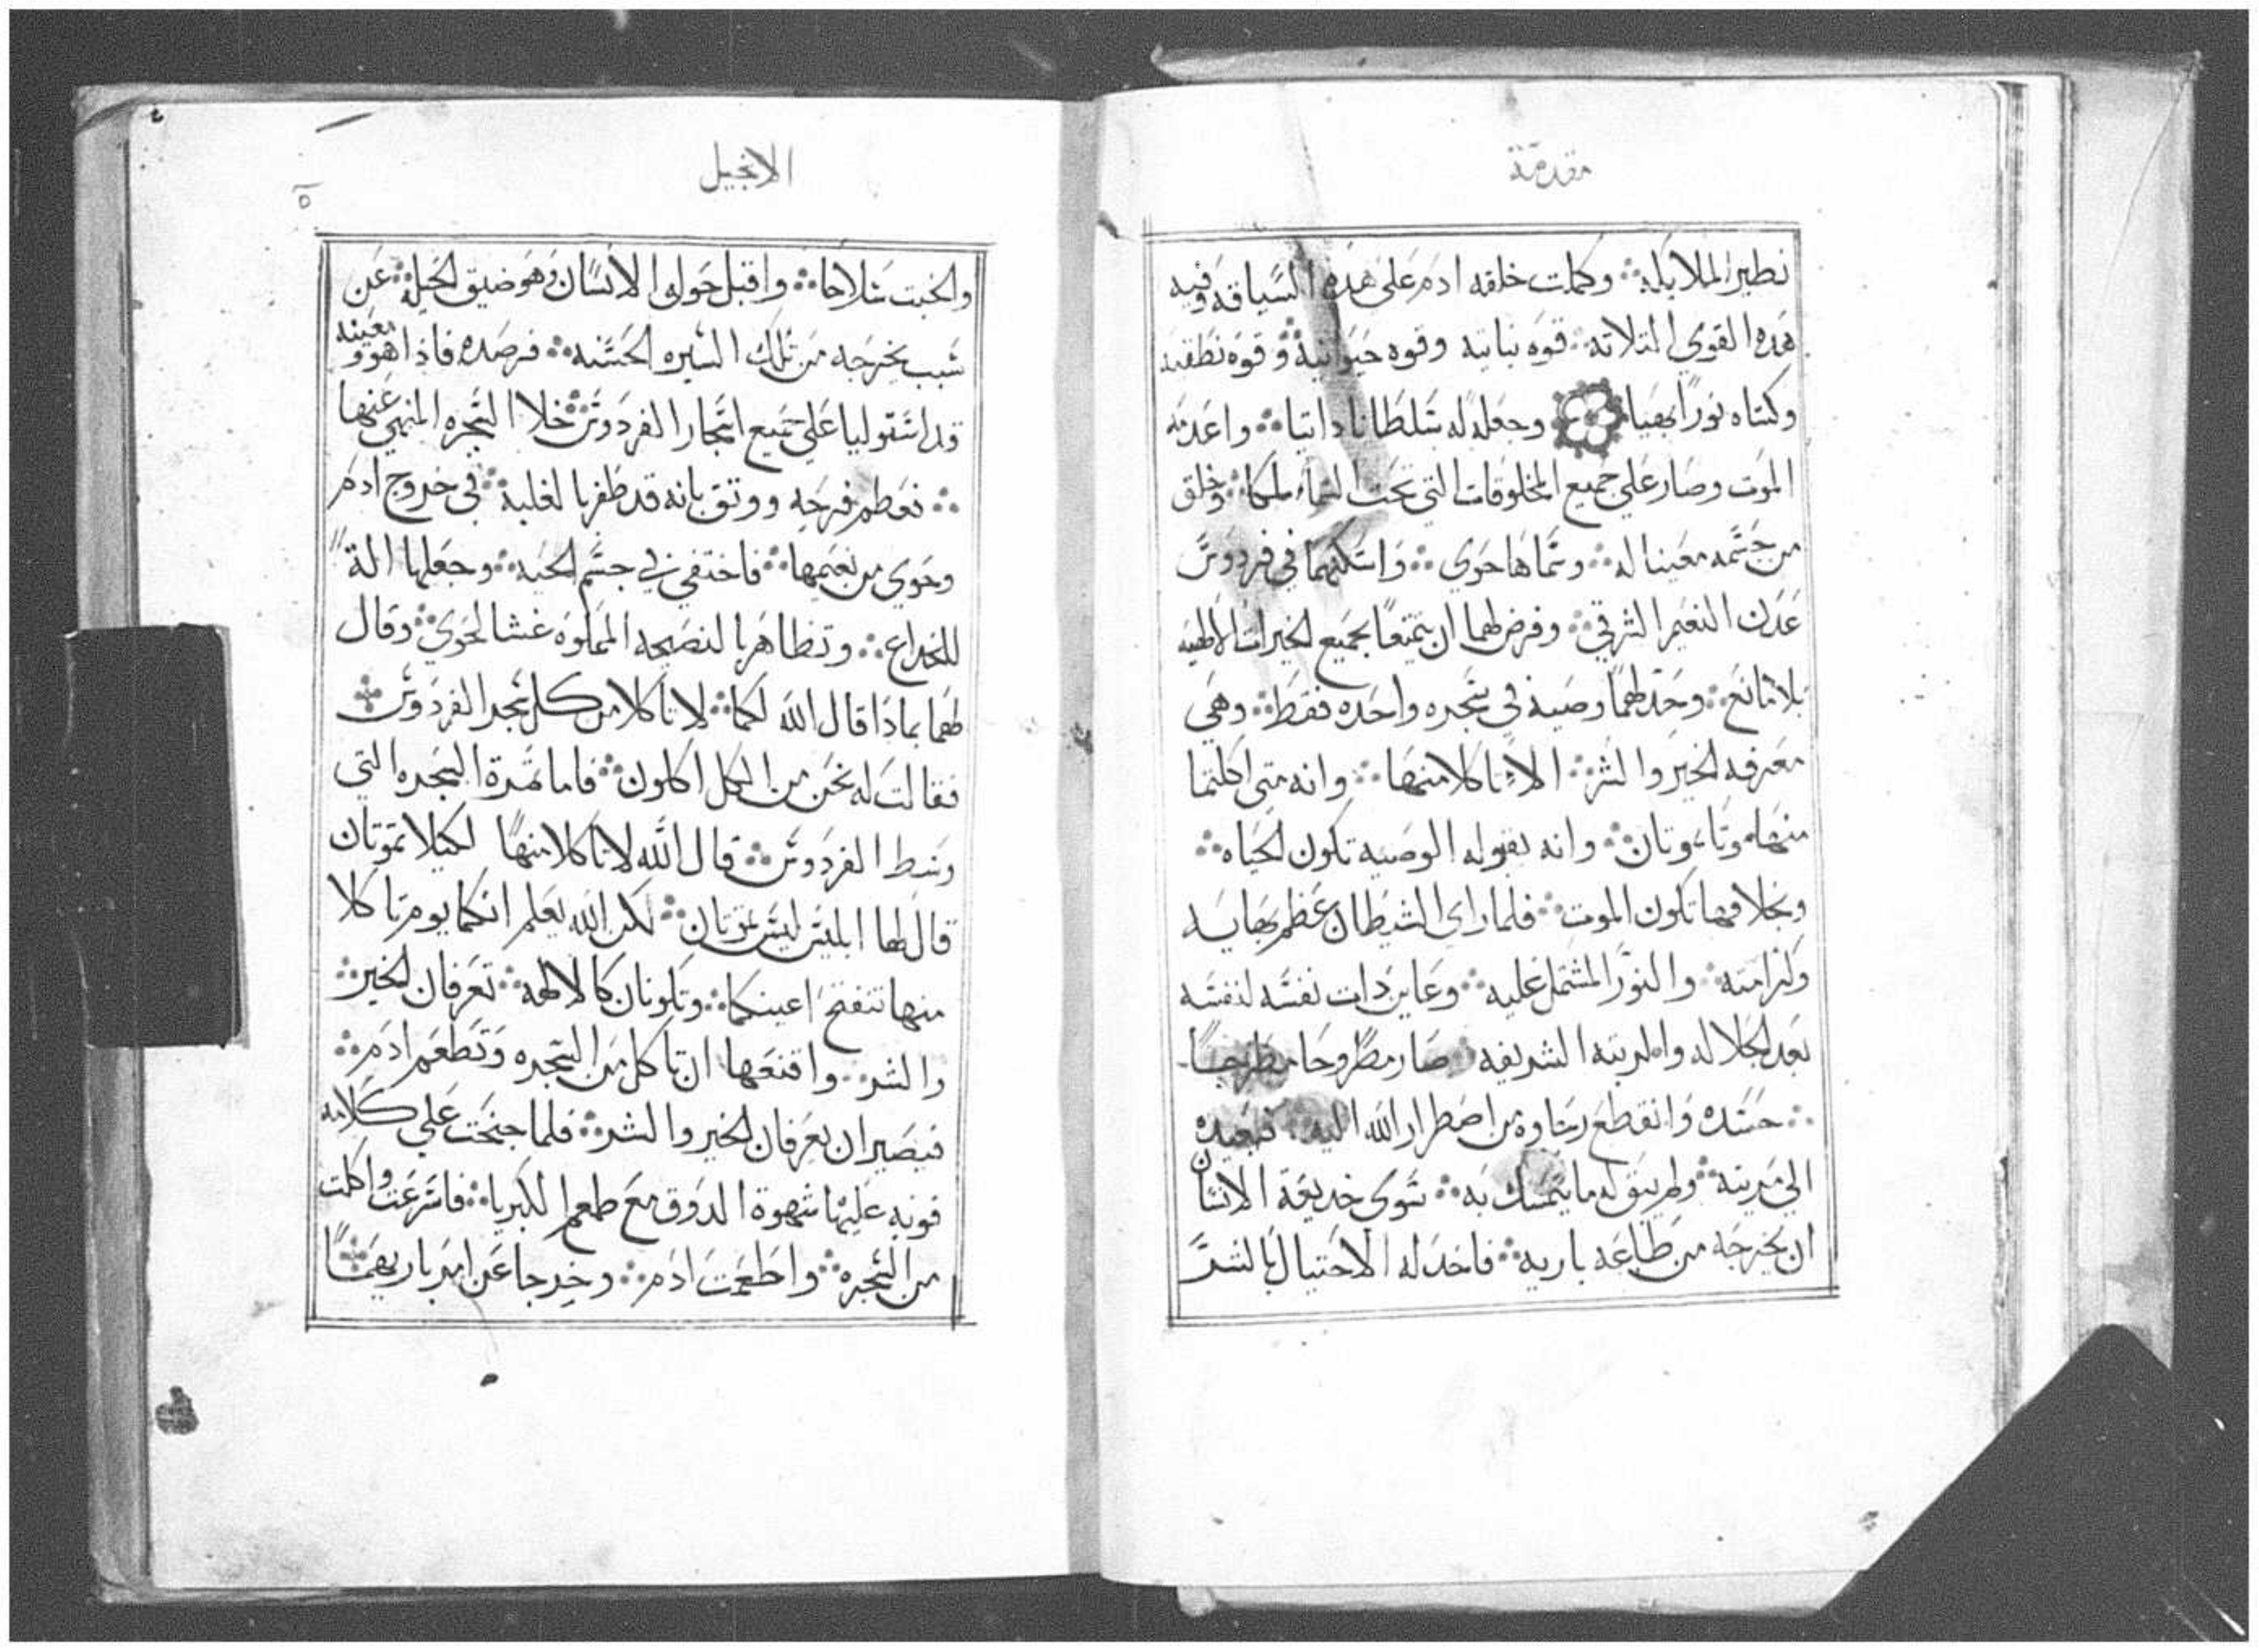 مقدمة
نظير الملايكه ∴ وكملت خلقه ادم على هذه السياقه وفيه
هذه القوي التلاته ∴ قوه نباتيه وقوه حيوانية ∴ وقوه نطقيه
وكساه نورًا بهيا وجعل له سلطانا داتيا ∴ واعدمه
الموت وصار على جميع المخلوقات التي تحت السماء ملكا ∴ وخلق
من جسمه معينا له ∴ وسماها حوي ∴ واسكنهما في فردوس
عدن النعيم الشرقي ∴ وفرض لهما ان يتمتعا بجميع الخيرات الالهيه
بلا مانع ∴ وحد لهما وصية في شجره واحده فقط ∴ وهي
معرفه الخير والشر ∴ الا ياكلا منها ∴ وانه متي اكلتما
منها موتا تموتان ∴ وانه بقبوله الوصيه تكون الحياه ∴
وبخلافها تكون الموت ∴ فلما راي الشيطان عظم بهايه
وكرامته ∴ والنور المشتمل عليه ∴ وعاين دات نفسه لنفسه
بعد الجلاله والمرتبه الشريفه ∴ صار مطروحا
∴ حسده وانقطع رجاوه من اضطرار الله اليه ∴ فيعيده
الي مرتبته ∴ ولم يبق له ما يتمسك به ∴ سوي خديعة الانسان
ان يخرجه من طاعه باريه ∴ فاخد له الاحتيال بالشر
الانجيل
٥
والخبت سلاحا ∴ واقبل حول الانسان وهو ضيق الحيل ∴ عن
سبب يخرجه من تلك السيره الحسنه ∴ فرصده فاذا هو ومعينه
قد استوليا على جميع اشجار الفردوس ∴ خلا الشجره المنهي عنها
∴ فعظم فرحه ووتق بانه قد ظفر بالغلبة ∴ في خروج ادم
وحوي من نعيمها ∴ فاختفي في جسم الحيه ∴ وجعلها الةً
للخداع ∴ وتظاهر بالنصيحه المملوه غشا لحوي ∴ وقال
لهما بماذا قال الله لكما ∴ لا تاكلا من كل شجر الفردوس ∴
فقالت له نحن من الكل اكلون ∴ فاما تمرة الشجره التي
وسط الفردوس ∴ قال الله لا تاكلا منها لكيلا تموتان
قال لها ابليس ليس تموتان ∴ لكن الله يعلم انكما يوم تاكلا
منها تنفتح اعينكما ∴ وتكونان كالالهه ∴ تعرفان الخير ∴
والشر ∴ واقنعها ان تاكل من الشجره وتطعم ادم ∴
فيصيران يعرفان الخير والشر ∴ فلما جنحت علي كلامه
قويه عليها شهوة الدوق مع طعم الكبريا ∴ فاسرعت واكلت
من الشجره ∴ واطعمت ادم ∴ وخرجا عن امر باريهما